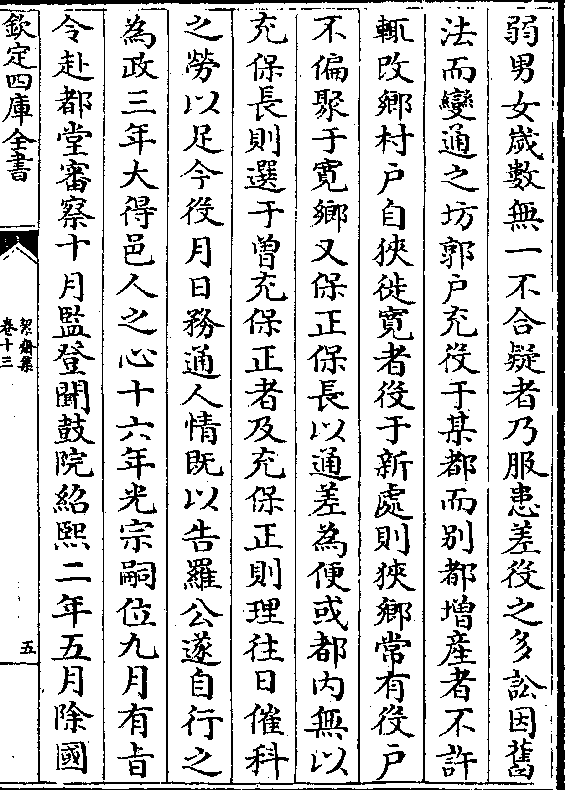 弱男女歲數無一不合疑者乃服患差役之多訟因舊
法而變通之坊郭户充役于某都而别都增産者不許
輒改鄉村户自狹徙寛者役于新處則狹鄉常有役户
不偏聚于寛鄉又保正保長以通差為便或都内無以
充保長則選于曽充保正者及充保正則理往日催科
之勞以足今役月日務通人情既以告羅公遂自行之
為政三年大得邑人之心十六年光宗嗣位九月有㫖
令赴都堂審察十月監登聞鼓院紹熙二年五月除國
欽定四庫全書
絜齋集
卷十三
五